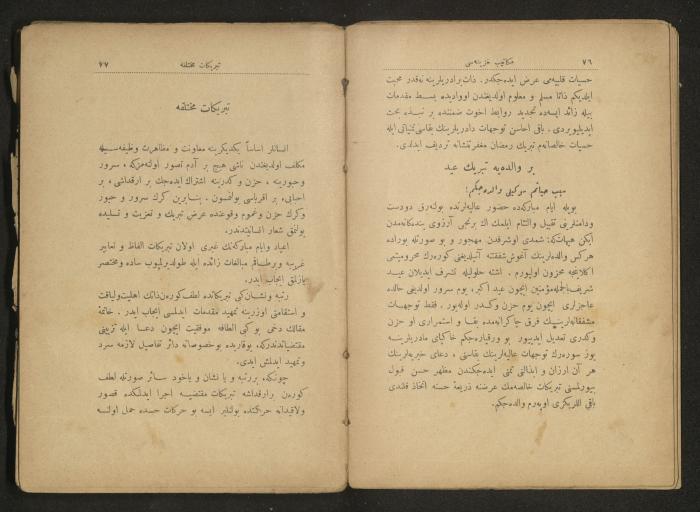 ٧٦
مكاتيب خزينه‌سى
حسيات قلبيه‌مى عرض ايده‌جكدر. ذات برادريلرينه نه‌قدر محبت
ايلديكم ذاتاً مسلم و معلوم اولديغندن اووادیده بسط مقدمات
بيله زائد ايسه‌ده تجديد روابط اخوت ضمننده بر نبذه بحث
ايديليويردى. باقى احاسن توجهات دادريلرينك بقاسى تمنياتى ايله
حسيات خالصانه‌م تبريك رمضان مغفرتنشانه ترديف ايدلدى.
بر والده‌يه تبريك عيد
سبب حياتم سوكيلى والده‌جكم!
بويله ايام مباركه‌ده حضور عاليه‌لرنده بولنه‌رق دودست
ودامنلرينى تقبيل والتثام ايلمك اك برنجى آرزوى بنده‌كانه‌مدن
ايكن هيهات‌كه: شمدى اوشرفدن مهجور و بو صورتله بوراده
هركس والده‌لرينك آغوش شفقتنه آتيلديغنى كوره‌رك محروميتمى
اكلادقجه محزون اوليورم. اشته حلوليله تشرف ايديلان عيد
شريف بالجمله مؤمنين ايچون عيد اكبر، يوم سرور اولديغى حالده
عاجزلرى ايچون يوم حزن وكدر اوله‌يور. فقط توجهات
مشفقانه‌لرينك فرق چاكرانه‌مده بقا و استمرارى او حزن
وكدرى تعديل ايدييور بو ورقپاره‌جكم خاكپاى مادريلرينه
يوز سوره‌رك توجهات عاليه‌لرينك بقاسنى، دعاى خيريه‌لرينك
هر آن ارزان و ابذالنى تمنى ايده‌جكندن مظهر حسن قبول
بيورلمسنى تبريكات خالصه‌مك عرضنه ذريعهٔ حسنه اتخاذ قلندى
باقى اللريكزى اوپه‌رم والده‌جكم.
تبريكات مختلفه
٧٧
تبريكات مختلفه
انسانلر اساساً يكديكرينه معاونت و مظاهرت وظيفه‌سيله
مكلف اولديغندن ناشى هيچ بر آدم تصور اولنه‌مزكه، سرور
وحبورينه، حزن و كدرينه اشتراك ايده‌جك بر ارقداشى، بر
احبابى، بر اقرباسى بولنمسون. بنابرين كرك سرور و حبور
وكرك حزن وغموم وقوعنده عرض تبريك و تعزيت و تسليده
بولنمق شعار انسانيتدندر.
اعياد وايام مباركه‌نك غيرى اولان تبريكات الفاظ و تعابير
غريبه و برطاقم مبالغات زائده ايله طولديرلميوب ساده ومختصر
يازلمق ايجاب ايدر.
رتبه و نشان كبى تبريكاتده لطف كوره‌ن ذاتك اهليت ولياقت
و استقامتى اوزرينه تمهيد مقدمات ايدلمسى ايجاب ايدر. خاتمهٔ
مقالك دخى بوكبى الطافه موفقيت ايچون دعا ايله تزيينى
مقتضياتدندركه، بوقاريده بوخصوصاته دائر تفاصيل لازمه سرد
وتمهيد ايدلمش ايدى.
چونكه، بررتبه و يا نشان و ياخود سائر صورتله لطف
كوره‌ن برارقداشه تبريكات مقتضيه اجرا ايدلمكده قصور
ولاقيدانه حركتده بولنيلير ايسه بو حركات حسده حمل اولنسه